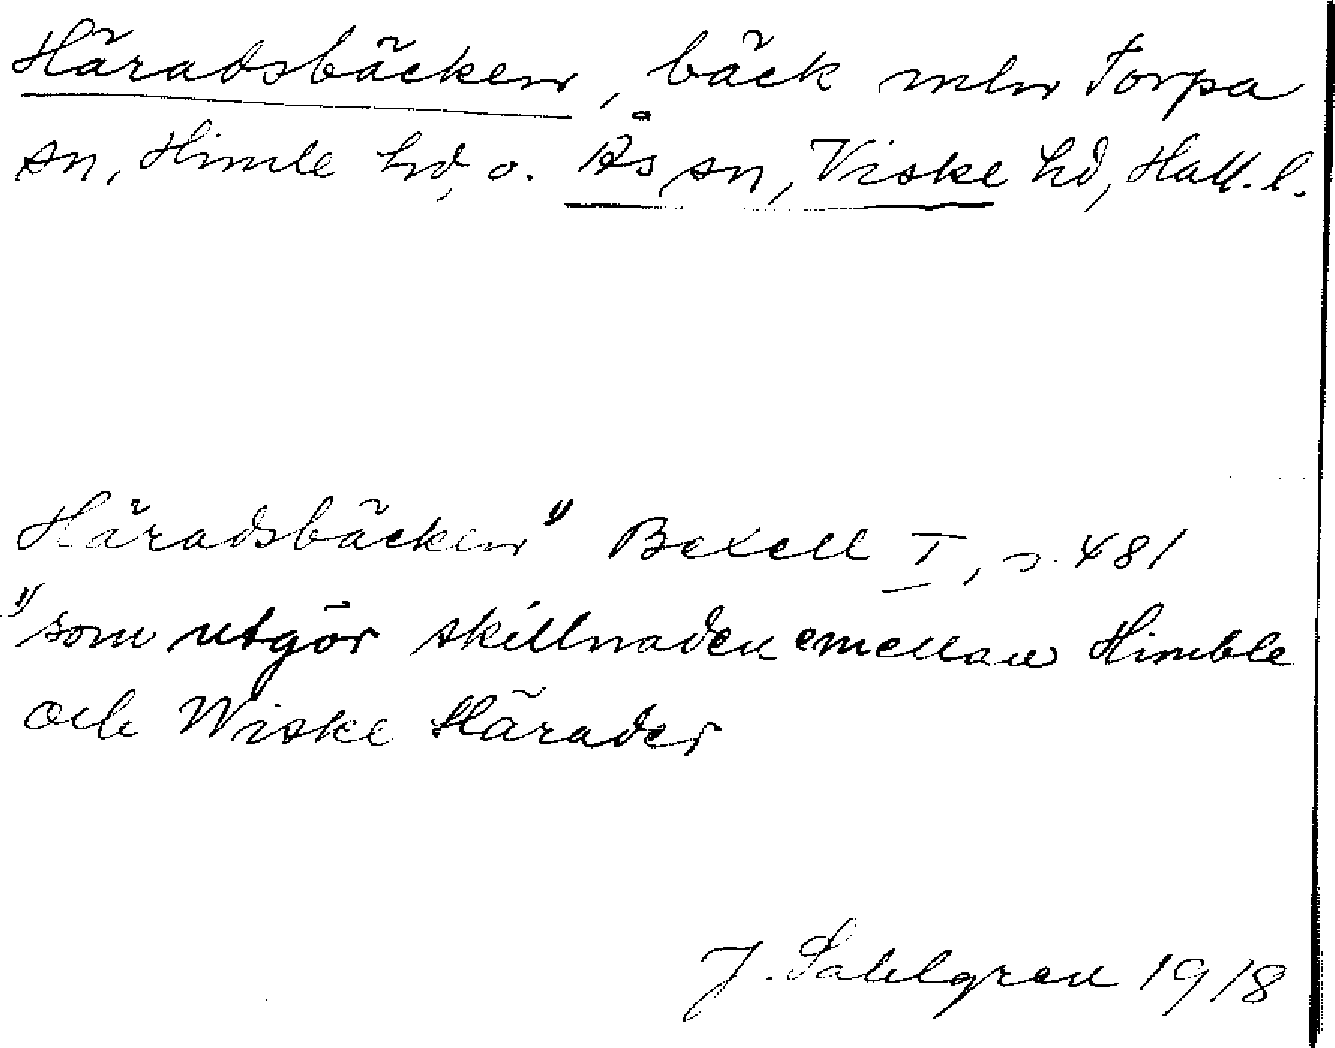 Häradsbäcken, bäck mln Torpa
sn, Himle hd, o. Ås sn, Viske hd, Hall. l.
Häradsbäcken" Bexell I, s. 481
"som utgör skillnaden emellan Himble
och Wiske Härader
J. Sahlgren 1918